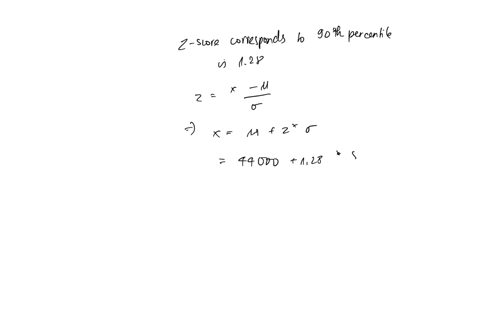 Z-score corresponds to 90th percentile
is 1.28
z = x - μ / σ
=) x = μ + z * σ
= 44000 + 1.28 *